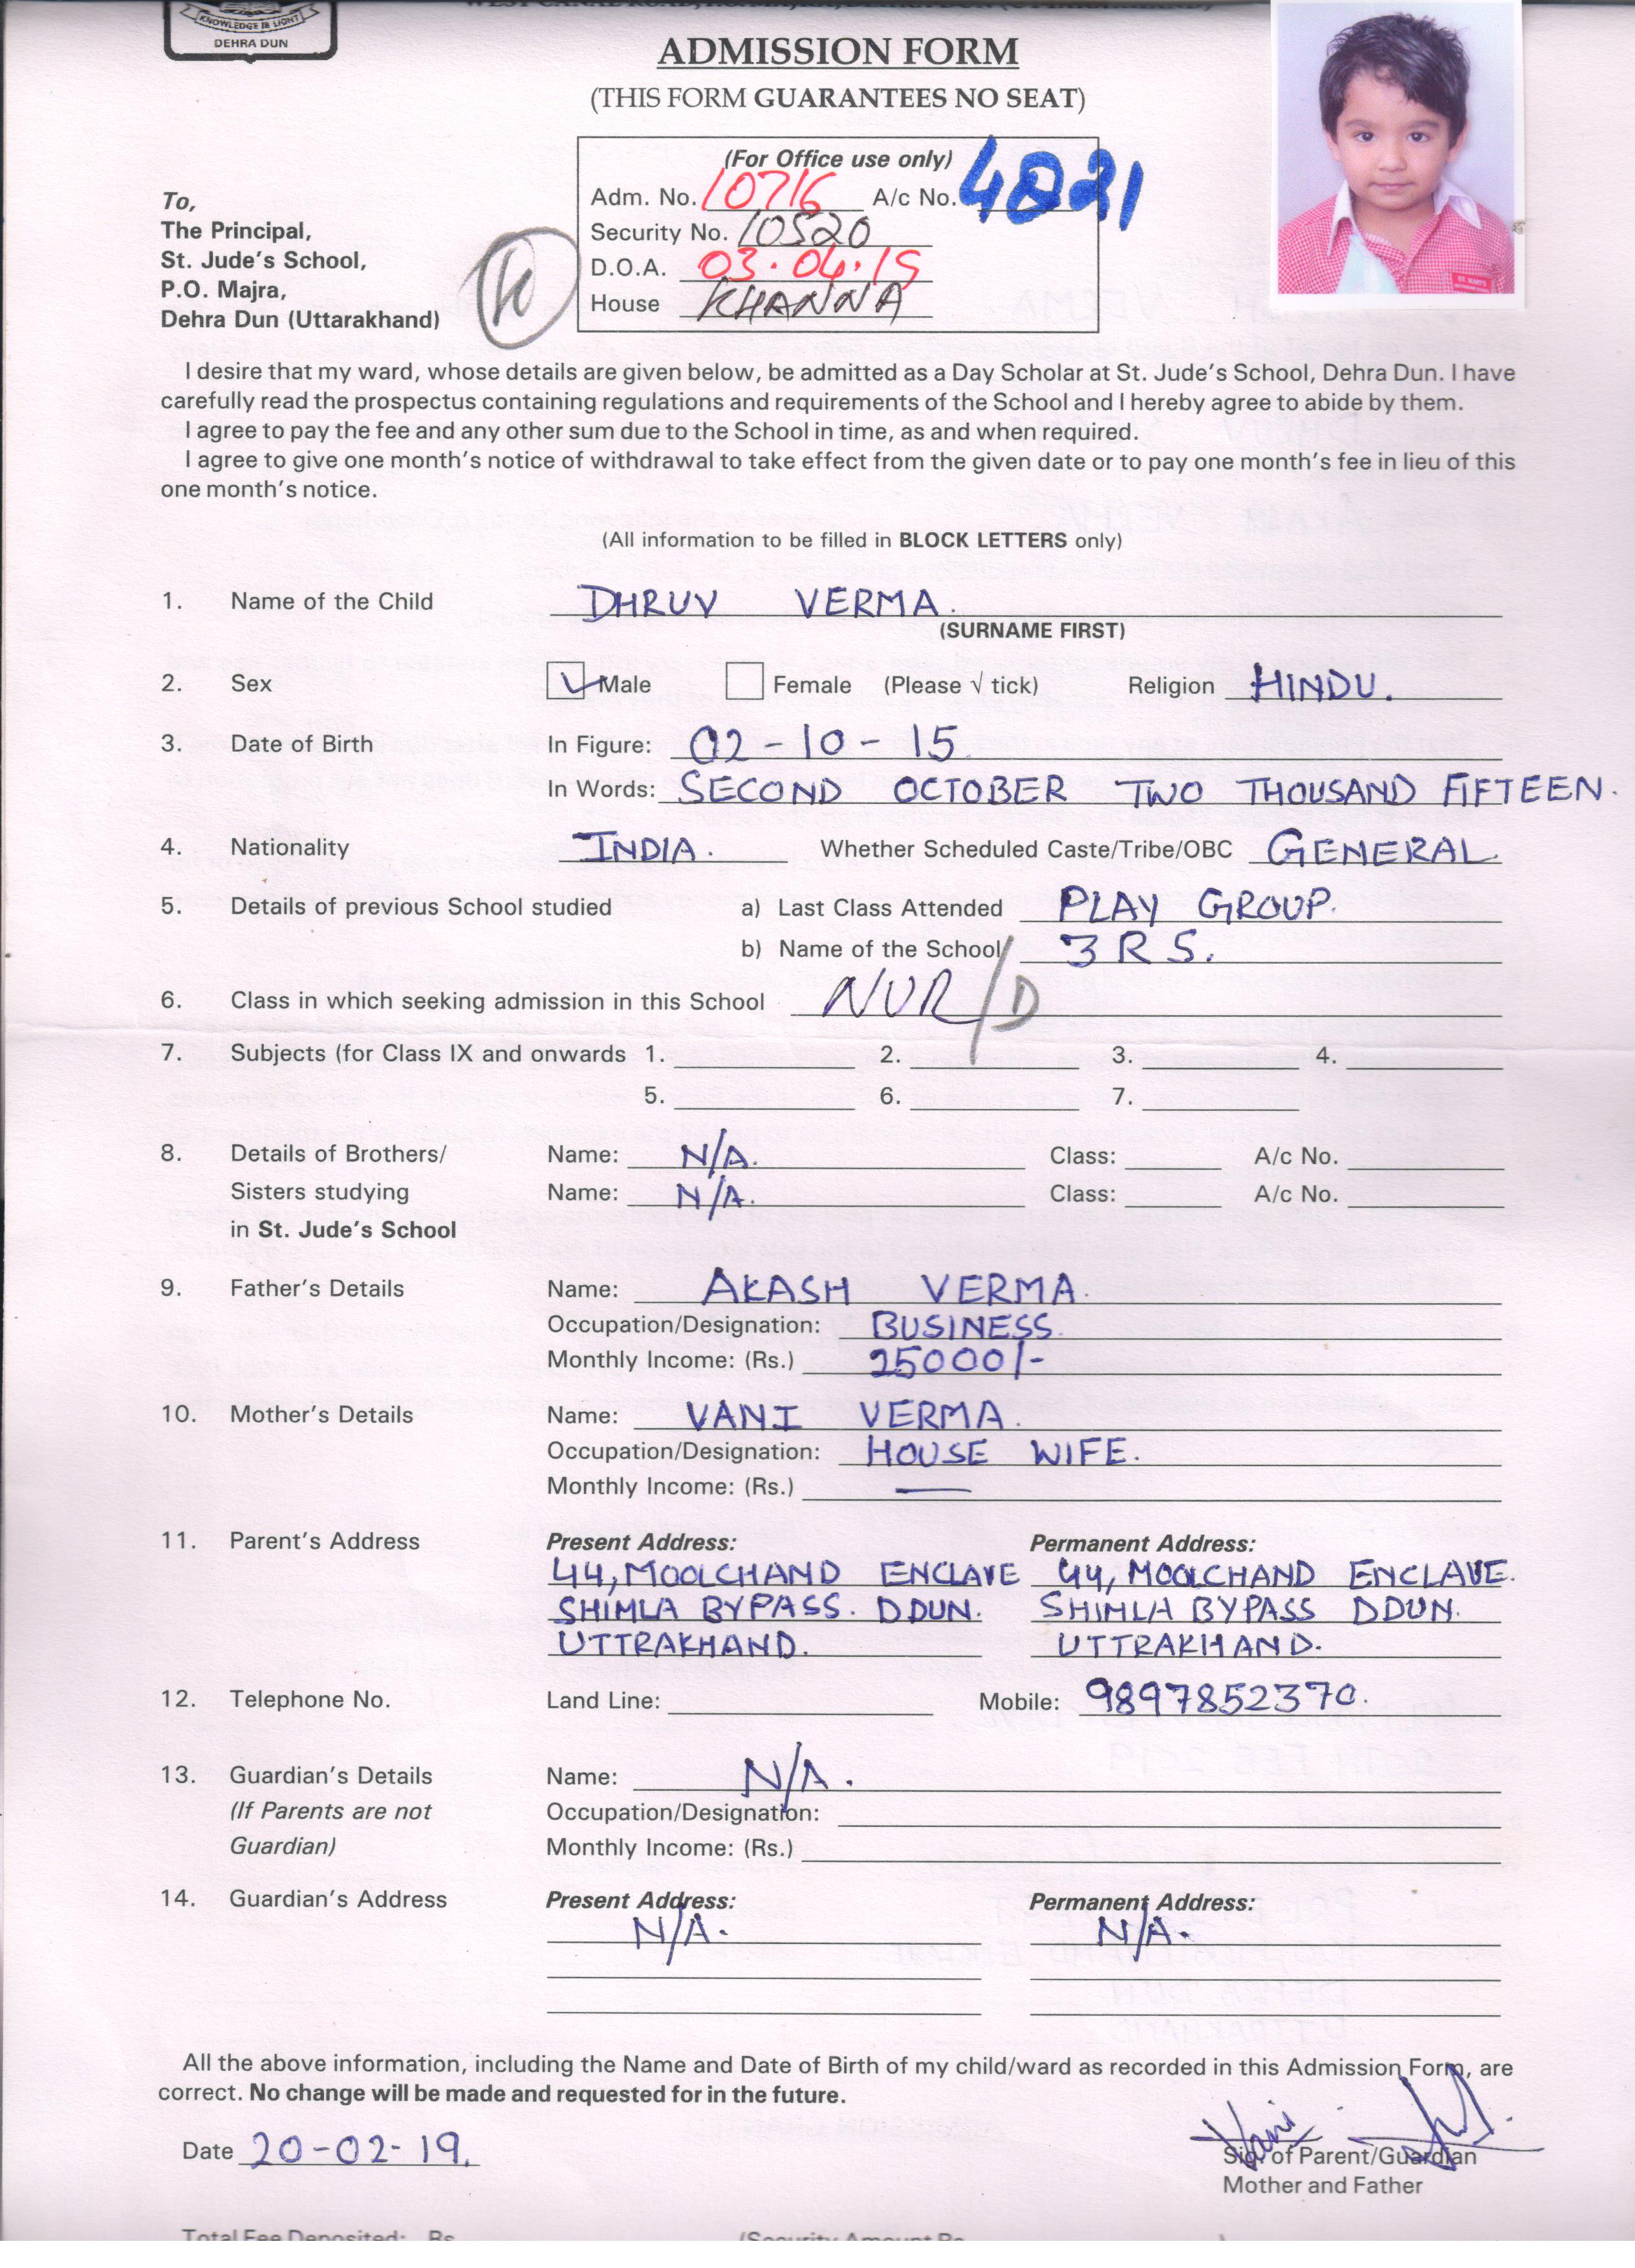 KNOWLEDGE IS LIGHT
DEHRA DUN
ADMISSION FORM
(THIS FORM GUARANTEES NO SEAT)
(For Office use only)
Adm. No. 10716 A/c No. 4821
Security No. 10520
D.O.A. 03.04.19
House KHANNA
To,
The Principal,
St. Jude's School,
P.O. Majra,
Dehra Dun (Uttarakhand)
I desire that my ward, whose details are given below, be admitted as a Day Scholar at St. Jude's School, Dehra Dun. I have
carefully read the prospectus containing regulations and requirements of the School and I hereby agree to abide by them.
I agree to pay the fee and any other sum due to the School in time, as and when required.
I agree to give one month's notice of withdrawal to take effect from the given date or to pay one month's fee in lieu of this
one month's notice.
(All information to be filled in BLOCK LETTERS only)
1. Name of the Child DHRUV VERMA.
(SURNAME FIRST)
2. Sex Male Female (Please √ tick) Religion HINDU.
3. Date of Birth In Figure: 02-10-15
In Words: SECOND OCTOBER TWO THOUSAND FIFTEEN.
4. Nationality INDIA. Whether Scheduled Caste/Tribe/OBC GENERAL.
5. Details of previous School studied a) Last Class Attended PLAY GROUP.
b) Name of the School 3 R S.
6. Class in which seeking admission in this School NUR/D
7. Subjects (for Class IX and onwards 1. 2. 3. 4.
5. 6. 7.
8. Details of Brothers/ Name: N/A. Class: A/c No.
Sisters studying Name: N/A. Class: A/c No.
in St. Jude's School
9. Father's Details Name: AKASH VERMA.
Occupation/Designation: BUSINESS.
Monthly Income: (Rs.) 25000/-
10. Mother's Details Name: VANI VERMA.
Occupation/Designation: HOUSE WIFE.
Monthly Income: (Rs.) —
11. Parent's Address Present Address: Permanent Address:
44, MOOLCHAND ENCLAVE 44, MOOLCHAND ENCLAVE.
SHIMLA BYPASS. DDUN. SHIMLA BYPASS DDUN.
UTTRAKHAND. UTTRAKHAND.
12. Telephone No. Land Line: Mobile: 9897852370.
13. Guardian's Details Name: N/A.
(If Parents are not Occupation/Designation:
Guardian) Monthly Income: (Rs.)
14. Guardian's Address Present Address: Permanent Address:
N/A. N/A.
All the above information, including the Name and Date of Birth of my child/ward as recorded in this Admission Form, are
correct. No change will be made and requested for in the future.
Date 20-02-19. Vani
Sig. of Parent/Guardian
Mother and Father
Total Fee Deposited: Rs. (Security Amount Rs. )